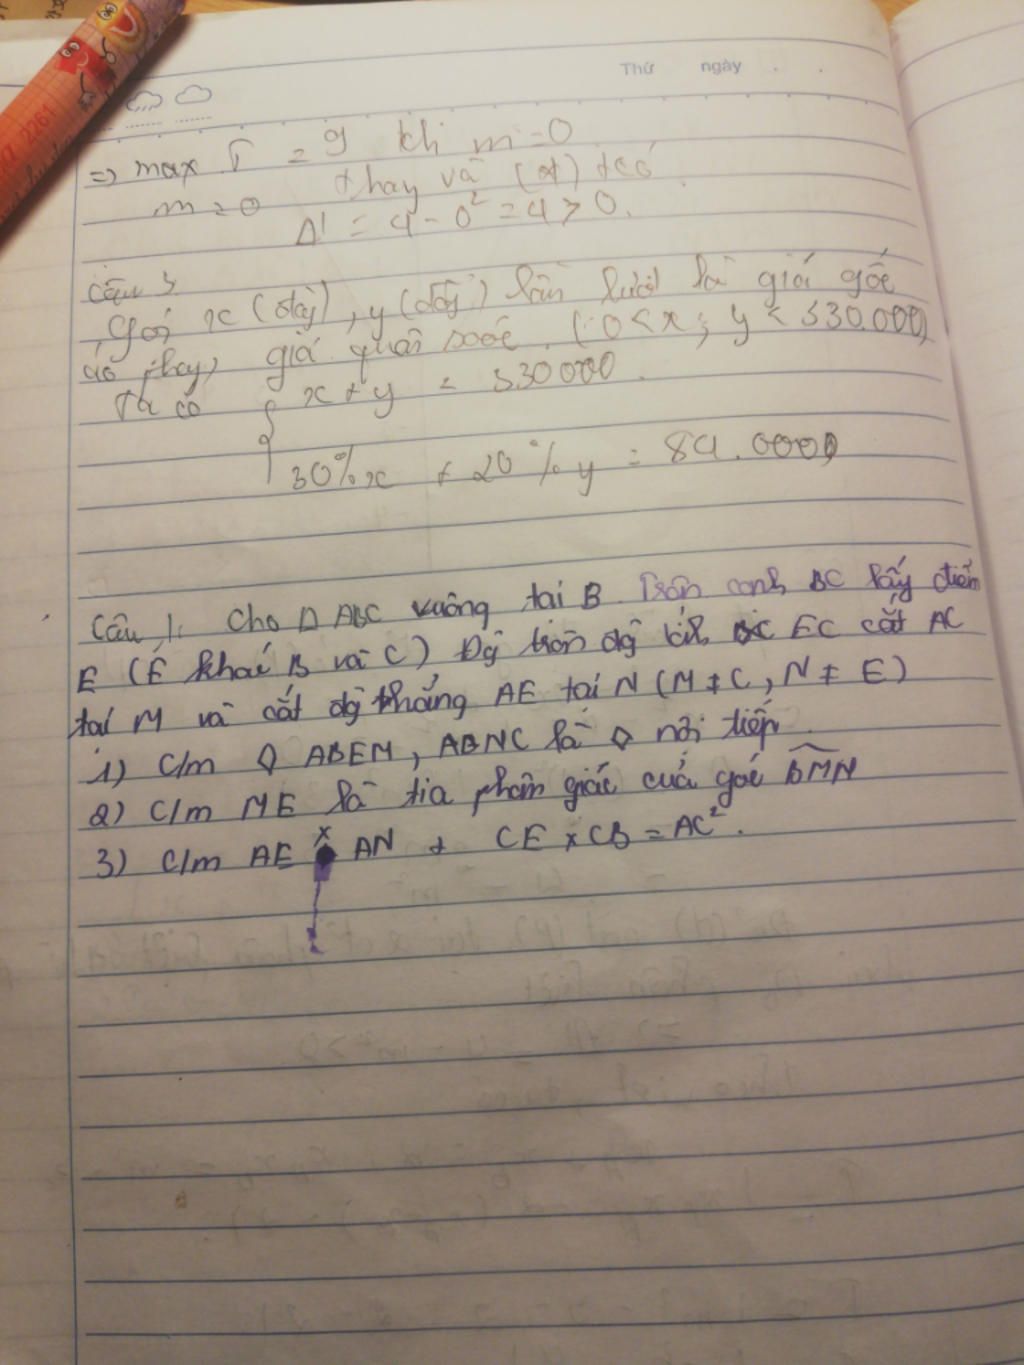 2261
Thứ ngày . .
=> max T = 9 khi m=0
m = 0 thay và (*) tcó
Δ' = 4 - 0² = 4 > 0.
Câu 3
Gọi x (đồg), y (đồg) lần lượt là giá gốc
áo phay, giá quần soóc. (0 < x; y < 330.000)
Ta có { x + y = 330000.
30%x + 20%y = 84.0000
Câu 1: Cho Δ ABC vuông tại B Trên cạnh BC lấy điểm
E (E khác B và C) Đg tròn đg kính EC cắt AC
tại M và cắt đg thẳng AE tại N (M ≠ C, N ≠ E)
1) C/m ◊ ABEM, ABNC là ◊ nội tiếp
2) C/m ME là tia phân giác của góc BMN
3) C/m AE x AN + CE x CB = AC².